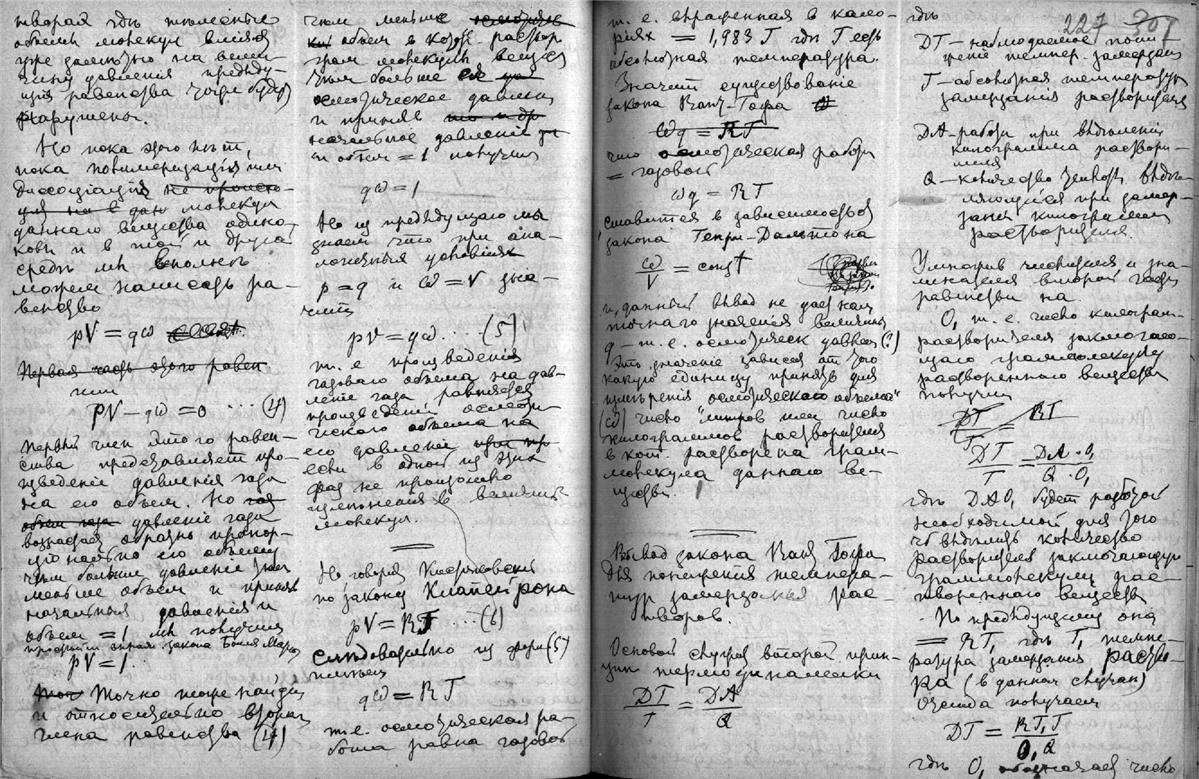 которая гдѣ
объемъ молекул влияя
уже замѣтно на вели-
чину давленія предыду-
щія равенства
нарушены.
Но пока этого нѣтъ,
пока полимеризація или
диссоціація
молекул
даннаго вещества одина-
ковы и в той и другой
средѣ мы вполнѣ
можемъ написать ра-
венство
pV = qω
Первая часть этого равен
или
PV − qω = 0 ... (4)
Первый член этого равен-
ства представляет про-
изведеніе давленія газа
на его объем. Но
объем газа давленіе газа
возрастая обратно пропор-
ціонально его объему
чѣм больше давленіе тѣм
меньше объем и принявъ
начальныя давленія и
объем = 1 мы получим
закона Бойля Мар.
pV = 1...
Точно также найдем
и относительно втораго
члена равенства (4)
чѣм меньше
объем в
грам молекулы вещест
чѣм больше
осмотическое давленіе
и принявъ
начальное давленіе
и объем = 1 получим
qω = 1
Но из предыдущаго мы
знаем что при ана-
логичных условіях
p = q и ω = v зна-
чит
pv = qω ... (5)
т. е. произведенія
газоваго объема на дав-
леніе газа равняется
произведенію осмоти-
ческаго объема на
его давленіе
если в одной из этих
фаз не произошло
измѣненія в величинѣ
молекул.
Но говоря
по закону Клапейрона
pV = RT ... (6)
Слѣдовательно из форм (5)
имѣем
qω = RT
т.е. осмотическая ра-
бота равна газовой
т. е. выраженная в кало-
ріях = 1,983 T гдѣ T есть
абсолютная температура.
Значит существованіе
закона Вант-Гоффа
ωq = RT
что осмотическая работа
= газовой
ωq = RT
ставится в зависимость от
закона Генри-Дальтона
ω/V = const
и, данный вывод не дает нам
точнаго значенія величины
q – т. е. осмотическ давлен (?)
Это значеніе зависит от того
какую единицу принять для
измѣренія осмотическаго объема
(ω) число литров или число
килограммов растворителя
в кот. растворена грам-
молекула даннаго ве-
щества.
Вывод закона Вант Гоффа
для пониженія темпера-
тур замерзанья рас-
творов.
Основой служит второй прин-
цип термодинамики
DT/T = DA/Q
227 207
гдѣ
DT – наблюдаемое пони
женіе темпер. замерзан
T – абсолютная температура
замерзанія растворителя
DA – работа при выдѣленіи
килограмма раствори-
теля
Q – количество теплоты выдѣ-
ляющейся при замер-
заніи килограмма
растворителя.
Умножив числителя и зна-
менателя второй части
равенства на
O, т. е. число килограм-
растворителя заключаю-
щаго граммолекулу
растворённаго вещества
получим
DT/T = RT
DT/T = DA · O₁/Q · O₁
гдѣ DAO₁ будет работой
необходимой для того
чтб выдѣлить количество
растворителя заключающую
граммолекулу рас-
творённаго вещества
По предыдущему она
= RT₁ гдѣ T₁ темпе-
ратура замерзанія раство
ра (в данном случаѣ)
Отсюда получаем
DT = RT₁T/O₁Q
гдѣ O₁ обозначает число